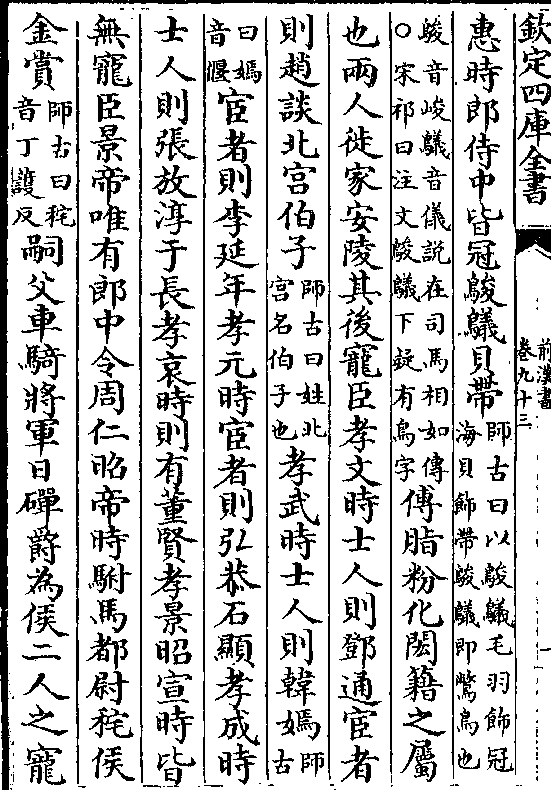 欽定四庫全書
前漢書
卷九十三
惠時郎侍中皆冠鵔鸃貝帶師古曰以鵔鸃毛羽飾冠海貝飾帶鵔鸃即鷩鳥也
鵔音峻鸃音儀説在司馬相如傳○宋祁曰注文鵔鸃下疑有鳥字傅脂粉化閎籍之屬
也兩人徙家安陵其後寵臣孝文時士人則鄧通宦者
則趙談北宮伯子師古曰姓北宮名伯子也孝武時士人則韓嫣師古
曰嫣音偃宦者則李延年孝元時宦者則弘恭石顯孝成時
士人則張放淳于長孝哀時則有董賢孝景昭宣時皆
無寵臣景帝唯有郎中令周仁昭帝時駙馬都尉秺侯
金賞師古曰秺音丁護反嗣父車騎將軍日磾爵為侯二人之寵